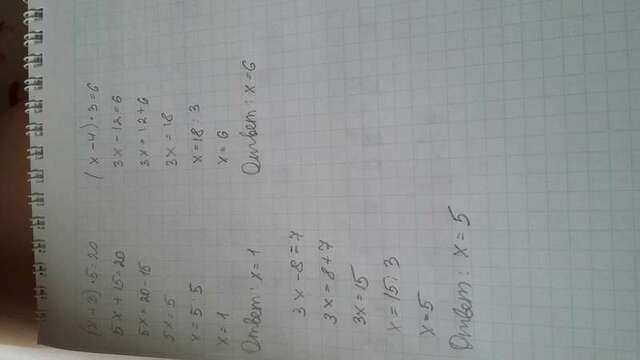 (x+3)·5=20
5x+15=20
5x=20-15
5x=5
x=5:5
x=1
Ответ: x=1
(x-4)·3=6
3x-12=6
3x=12+6
3x=18
x=18:3
x=6
Ответ: x=6
3x-8=7
3x=8+7
3x=15
x=15:3
x=5
Ответ: x=5